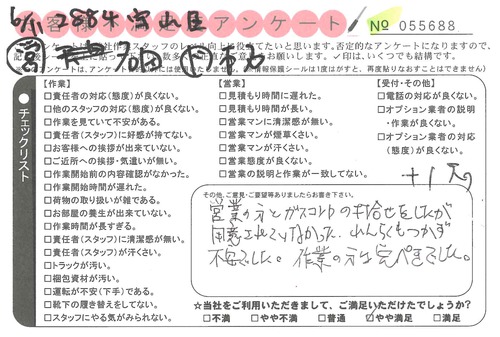 6/11 2884
アンケート
No 055688
チェックリスト
【作業】
□責任者の対応(態度)が良くない。
□他のスタッフの対応(態度)が良くない。
□作業を見ていて不安がある。
□責任者(スタッフ)に好感が持てない。
□お客様への挨拶が出来ていない。
□ご近所への挨拶・気遣いが無い。
□作業開始前の内容確認がなかった。
□作業開始時間が遅れた。
□荷物の取り扱いが雑である。
□お部屋の養生が出来ていない。
□作業時間が長すぎる。
□責任者(スタッフ)に清潔感が無い。
□責任者(スタッフ)が汗くさい。
□トラックが汚い。
□梱包資材が汚い。
□運転が不安(下手)である。
□靴下の履き替えをしてない。
□スタッフにやる気がみられない。
【営業】
□見積もり時間に遅れた。
□見積もり時間が長い。
□営業マンに清潔感が無い。
□営業マンが煙草くさい。
□営業マンが汗くさい。
□営業態度が良くない。
□営業の説明と作業が一致してない。
【受付・その他】
□電話の対応が良くない。
□オプション業者の説明
・作業が良くない。
□オプション業者の対応
(態度)が良くない。
その他、ご意見・ご要望等ありましたらお書き下さい。
営業の方とガスコンロの打合せをしたが
用意されてなかった。れんらくもつかず
不安でした。作業の方は完ぺきでした。
☆当社をご利用いただきまして、ご満足いただけたでしょうか?
□不満 □やや不満 □普通 ☑やや満足 □満足